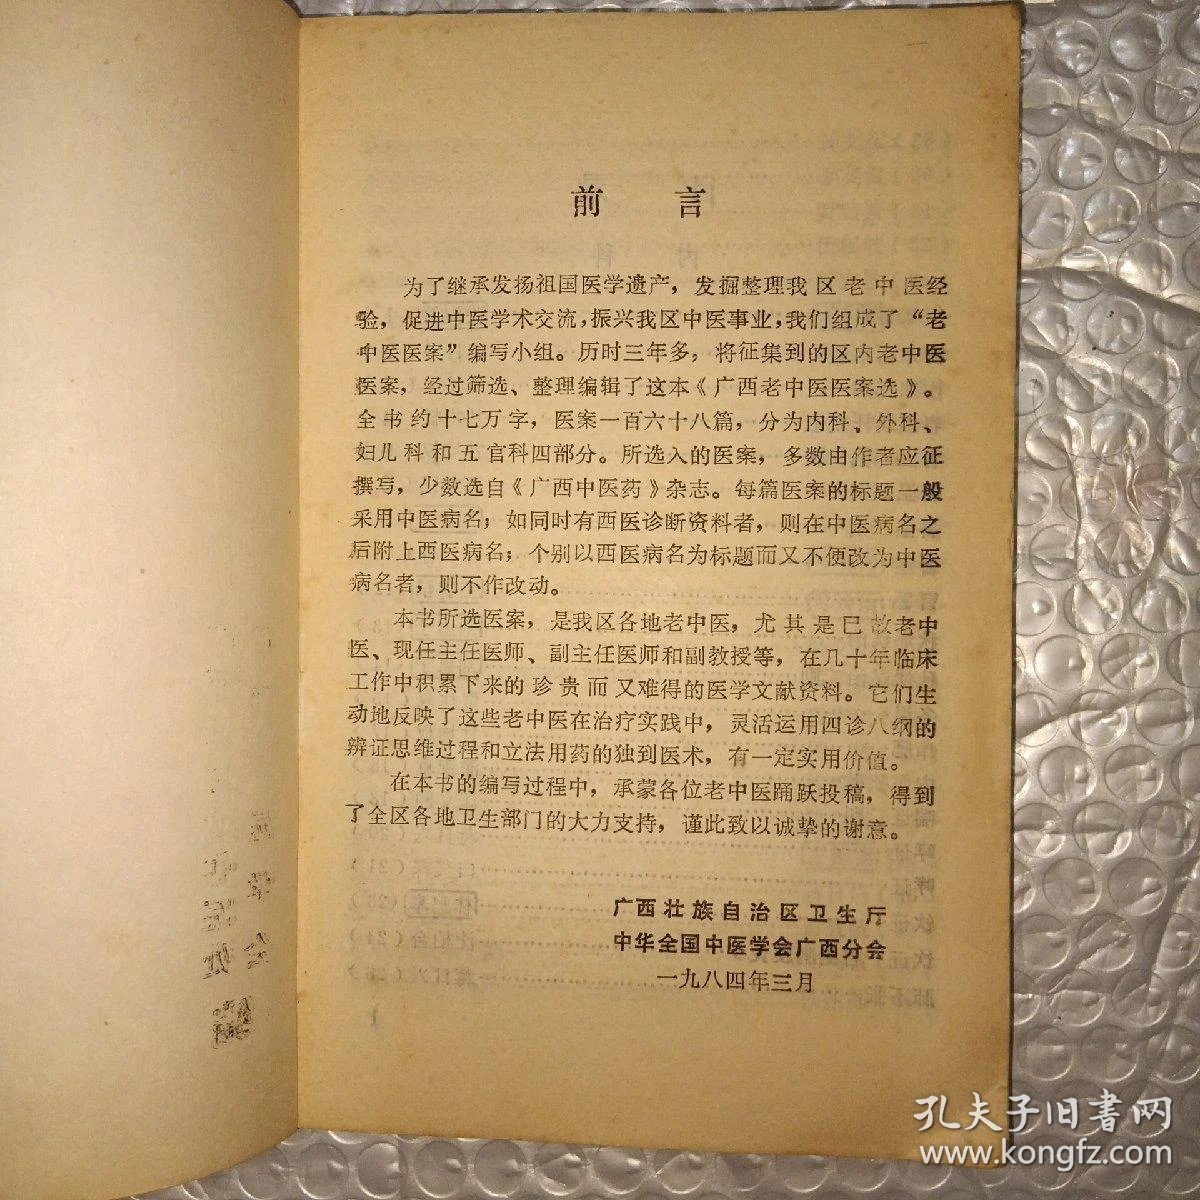 前言
为了继承发扬祖国医学遗产，发掘整理我区老中医经
验，促进中医学术交流，振兴我区中医事业，我们组成了“老
中医医案”编写小组。历时三年多，将征集到的区内老中医
医案，经过筛选、整理编辑了这本《广西老中医医案选》。
全书约十七万字，医案一百六十八篇，分为内科、外科、
妇儿科和五官科四部分。所选入的医案，多数由作者应征
撰写，少数选自《广西中医药》杂志。每篇医案的标题一般
采用中医病名；如同时有西医诊断资料者，则在中医病名之
后附上西医病名；个别以西医病名为标题而又不便改为中医
病名者，则不作改动。
本书所选医案，是我区各地老中医，尤其是已故老中
医、现任主任医师、副主任医师和副教授等，在几十年临床
工作中积累下来的珍贵而又难得的医学文献资料。它们生
动地反映了这些老中医在治疗实践中，灵活运用四诊八纲的
辨证思维过程和立法用药的独到医术，有一定实用价值。
在本书的编写过程中，承蒙各位老中医踊跃投稿，得到
了全区各地卫生部门的大力支持，谨此致以诚挚的谢意。
广西壮族自治区卫生厅
中华全国中医学会广西分会
一九八四年三月
孔夫子旧书网
www.kongfz.com